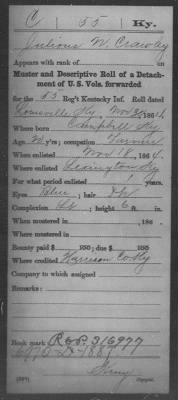 C | 55 | Ky.
Julious W. Craway
Appears with rank of
Muster and Descriptive Roll of a Detach-
ment of U. S. Vols. forwarded
for the 55 Reg't Kentucky Inf. Roll dated
Louisville Ky, Nov 186 4.
Where born Campbell Ky
Age y'rs; occupation Farmer
When enlisted Nov 18, 186 4.
Where enlisted Lexington Ky
For what period enlisted 1 years.
Eyes Blue ; hair
Complexion ; height 6 ft. in.
When mustered in , 186 .
Where mustered in
Bounty paid $ 100; due $ 100
Where credited Harrison Co. Ky
Company to which assigned
Remarks:
Book mark: R&P 316977
1887